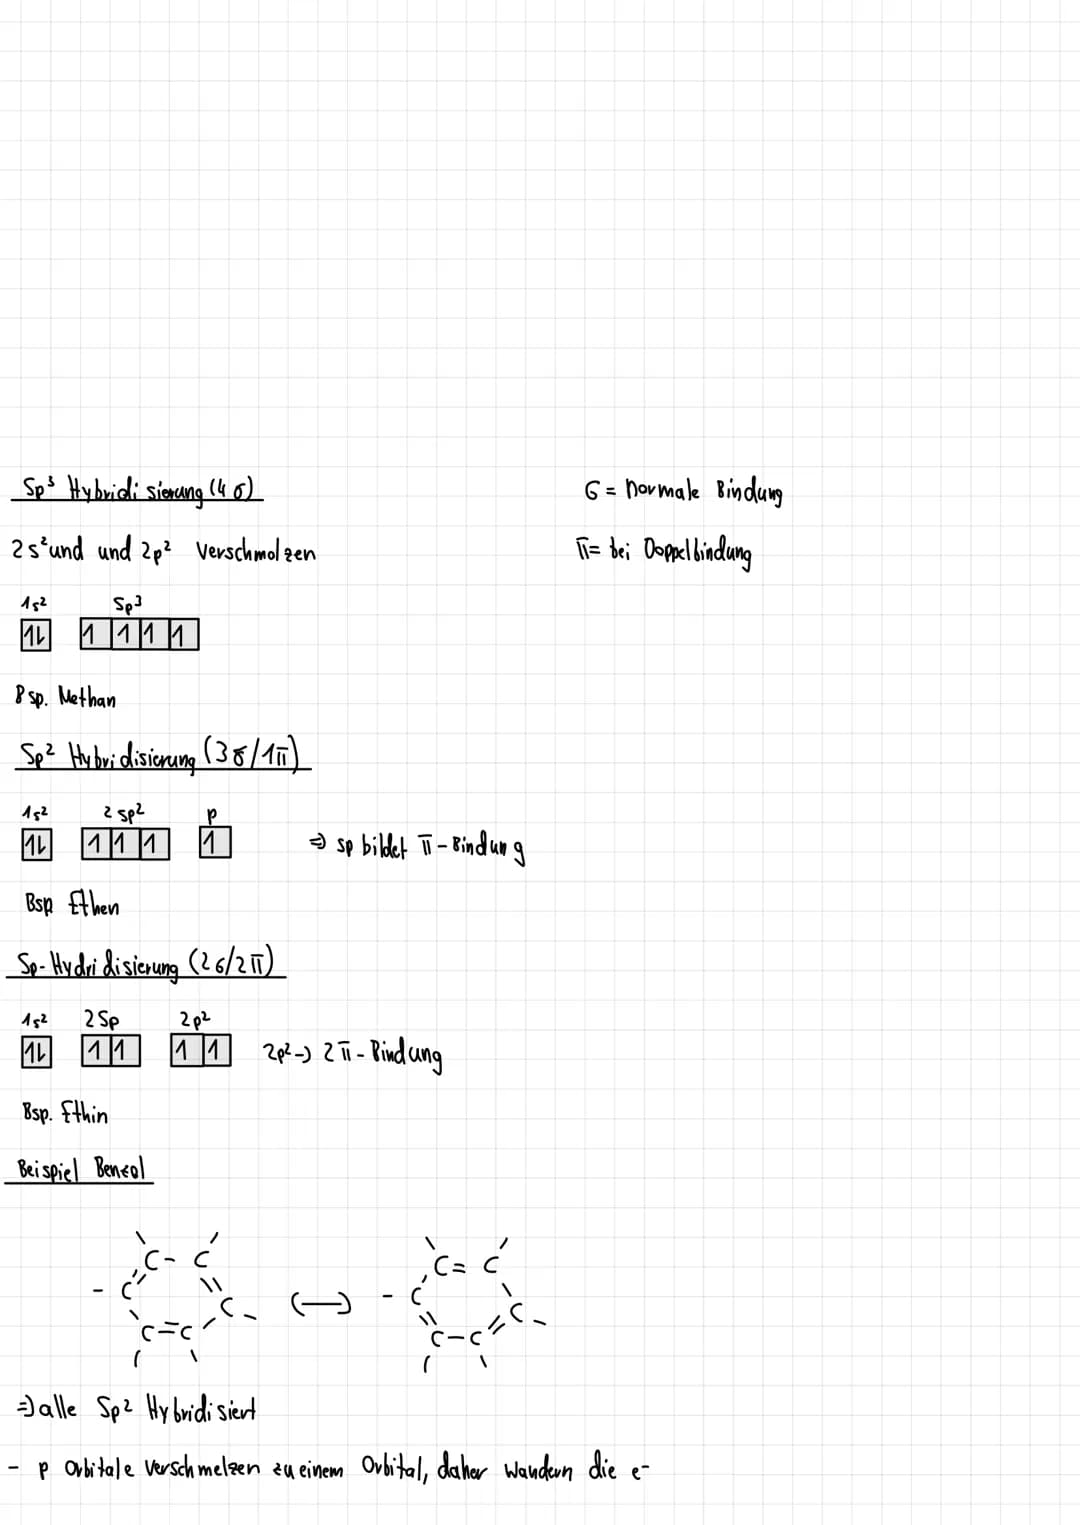 Sp³ Hybridisierung (4 σ)
σ = normale Bindung
2s² und und 2p² verschmolzen
π = bei Doppelbindung
1s² Sp³
1l 1 1 1 1
Bsp. Methan
Sp² Hybridisierung (3σ/1π)
1s² 2 sp² p
1l 1 1 1 1 => sp bildet π-Bindung
Bsp Ethen
Sp-Hydridisierung (2σ/2π)
1s² 2Sp 2p²
1l 1 1 1 1 2p² -> 2π-Bindung
Bsp. Ethin
Beispiel Benzol
C - C C = C
- C C - <-> - C C -
C = C C - C
=> alle Sp² Hybridisiert
- p Orbitale verschmelzen zu einem Orbital, daher wandern die e-